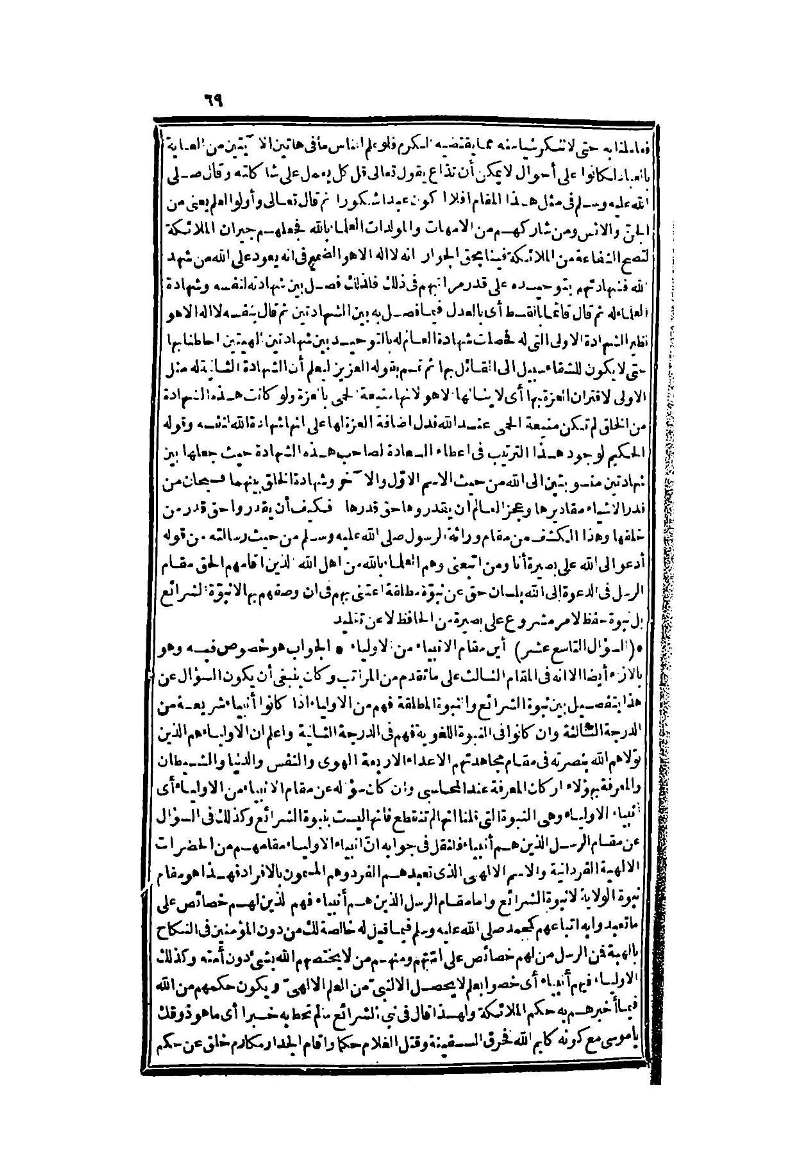 ٦٩
فعاملنا به حتى لا تنكر شيأ منه مما يقتضيه الكرم فلو علم الناس ما فى هاتين الآيتين من العناية
بالعباد لكانوا على أحوال لا يمكن أن تذاع يقول تعالى قل كل يعمل على شاكلته وقال صلى
الله عليه وسلم فى مثل هذا المقام أفلا أكون عبدا شكورا ثم قال تعالى وأولوا العلم يعنى من
الجن والانس ومن شاركهم من الامهات والمولدات العلماء بالله فجعلهم جيران الملائكة
لتصح الشفاعة من الملائكة فينا بحق الجوار انه لااله الا هو الضمير فى انه يعود على الله من شهد
الله فشهادتهم بتوحيده على قدر مراتبهم فى ذلك فلذلك فصل بين شهادته لنفسه وشهادة
العلماء له ثم قال قائما بالقسط أى بالعدل فيما فصل به بين الشهادتين ثم قال بنفسه لااله الا هو
نظير الشهادة الاولى التى له فحصلت شهادة العالم له بالتوحيد بين شهادتين الهيتين احاطتا بها
حتى لا يكون للشقاء سبيل الى القائل بها ثم تمم بقوله العزيز ليعلم أن الشهادة الثانية له مثل
الاولى لاقتران العزة بها أى لا ينالها الا هو لانها منيعة الحمى بالعزة ولو كانت هذه الشهادة
من الخلق لم تكن منيعة الحمى عند الله فدل اضافة العزة لها على انها شهادة الله لنفسه وقوله
الحكيم لوجود هذا الترتيب فى اعطاء السعادة لصاحب هذه الشهادة حيث جعلها بين
شهادتين منسوبتين الى الله من حيث الاسم الاول والآخر وشهادة الخلق بينهما فسبحان من
قدر الاشياء مقاديرها وعجز العالم ان يقدروها حق قدرها فكيف أن يقدروا حق قدر من
خلقها وهذا الكشف من مقام وراثة الرسول صلى الله عليه وسلم من حيث رسالته من قوله
أدعو الى الله على بصيرة أنا ومن اتبعنى وهم العلماء بالله من اهل الله الذين اقامهم الحق مقام
الرسل فى الدعوة الى الله بلسان حق عن نبوة مطلقة اعتنى بهم فى ان وصفهم بها لا نبوة الشرائع
بل نبوة حفظ لامر مشروع على بصيرة من الحافظ لا عن تقليد
* (السؤال التاسع عشر) أين مقام الانبياء من الاولياء * الجواب هو خصوص فيه وهو
بالازاء أيضا الا انه فى المقام الثالث على ما تقدم من المراتب وكان ينبغى أن يكون السؤال عن
هذا بتفصيل بين نبوة الشرائع والنبوة المطلقة فهم من الاولياء اذا كانوا أنبياء شريعة من
الدرجة الثالثة وان كانوا فى النبوة اللغوية فهم فى الدرجة الثانية واعلم ان الاولياء هم الذين
تولاهم الله بنصرته فى مقام مجاهدتهم الاعداء الاربعة الهوى والنفس والدنيا والشيطان
والمعرفة بهؤلاء اركان المعرفة عند المحاسبى وان كان سؤاله عن مقام الانبياء من الاولياء أى
أنبياء الاولياء وهى النبوة التى قلنا انها لم تنقطع فانها ليست بنبوة الشرائع وكذلك فى السؤال
عن مقام الرسل الذين هم أنبياء فلنقل فى جوابه ان أنبياء الاولياء مقامهم من الحضرات
الالهية الفردانية والاسم الالهى الذى تعبدهم الفرد وهم المسمون بالافراد فهذا هو مقام
نبوة الولاية لا نبوة الشرائع واما مقام الرسل الذين هم أنبياء فهم الذين لهم خصائص على
ما تعبدوا به اتباعهم كمحمد صلى الله عليه وسلم فيما قيل له خالصة لك من دون المؤمنين فى النكاح
بالهبة فمن الرسل من لهم خصائص على امتهم ومنهم من لا يختصهم الله بشئ دون أمته وكذلك
الاولياء فيهم أنبياء أى خصوا بعلم لا يحصل الا لنبى من العلم الالهى ويكون حكمهم من الله
فيما أخبرهم به حكم الملائكة ولهذا قال فى نبى الشرائع ما لم تحط به خبرا أى ما هو ذوقك
يا موسى مع كونه كليم الله فخرق السفينة وقتل الغلام حكما واقام الجدار مكارم خلق عن حكم